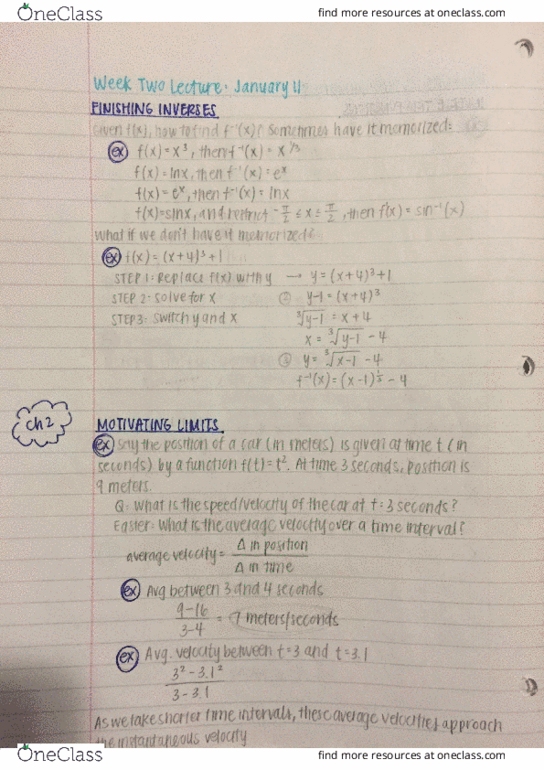 OneClass find more resources at oneclass.com
Week Two Lecture: January 11
FINISHING INVERSES
Given f(x), how to find f⁻¹(x)? Sometimes have it memorized:
ex f(x)=x³, then f⁻¹(x)=x^(1/3)
f(x)=lnx, then f⁻¹(x)=eˣ
f(x)=eˣ, then f⁻¹(x)=lnx
f(x)=sinx, and restrict -π/2 ≤ x ≤ π/2, then f(x)=sin⁻¹(x)
What if we don't have it memorized?
ex f(x)=(x+4)³+1
STEP 1: Replace f(x) with y → y=(x+4)³+1
STEP 2: Solve for x ② y-1=(x+4)³
STEP 3: Switch y and x ∛(y-1) = x+4
x = ∛(y-1) - 4
③ y = ∛(x-1) - 4
f⁻¹(x)=(x-1)^(1/3) - 4
Ch 2
MOTIVATING LIMITS
ex Say the position of a car (in meters) is given at time t (in
seconds) by a function f(t)=t². At time 3 seconds, position is
9 meters.
Q: What is the speed/velocity of the car at t=3 seconds?
Easier: What is the average velocity over a time interval?
average velocity = Δ in position / Δ in time
ex Avg between 3 and 4 seconds
9-16 / 3-4 = 7 meters/seconds
ex Avg. velocity between t=3 and t=3.1
3²-3.1² / 3-3.1
As we take shorter time intervals, these average velocities approach
the instantaneous velocity
OneClass find more resources at oneclass.com